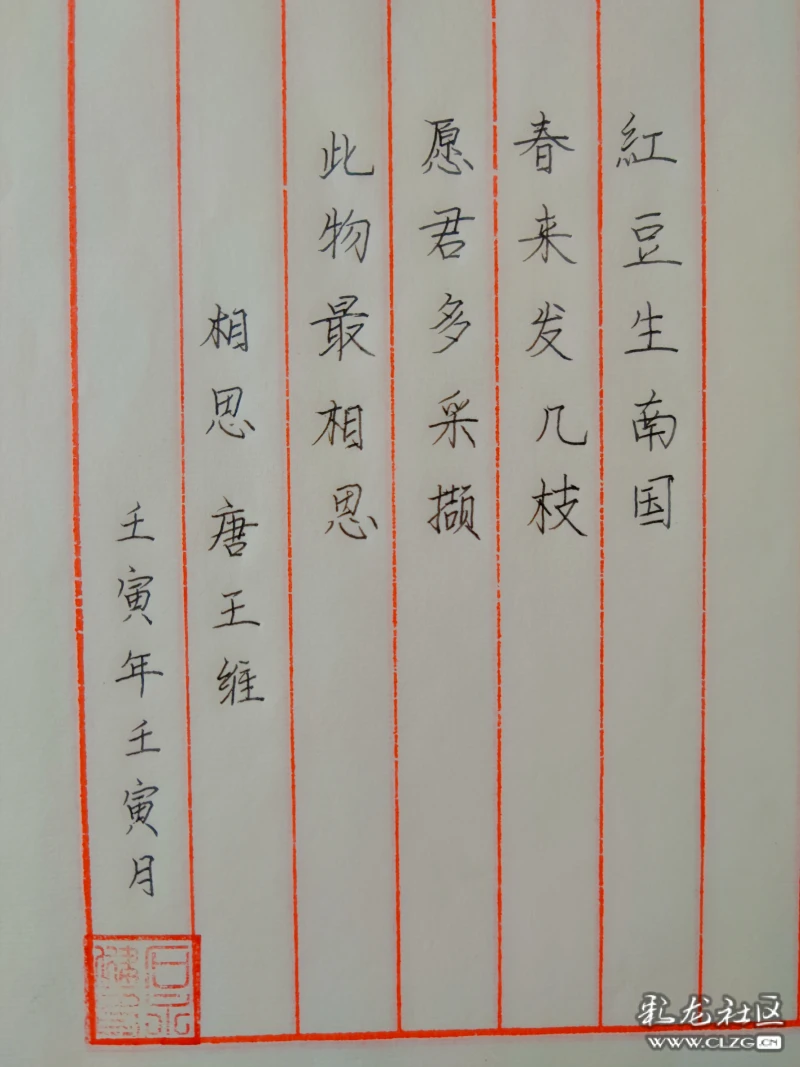 紅豆生南国
春来发几枝
愿君多采撷
此物最相思
相思 唐王维
壬寅年壬寅月
彩龙社区
WWW.CLZG.CN